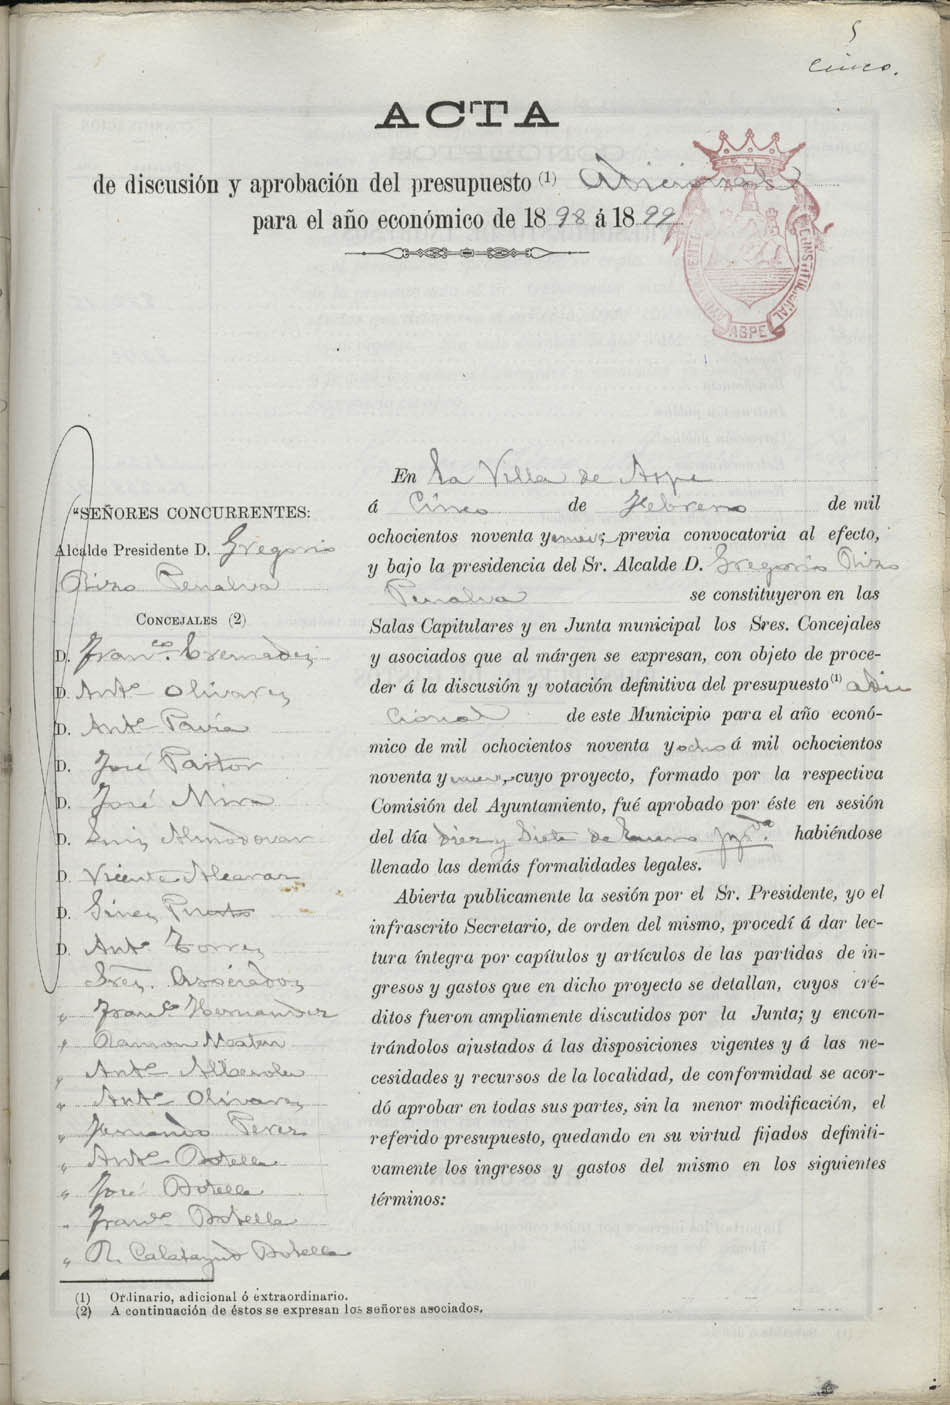 5
cinco.
ACTA
de discusión y aprobación del presupuesto (1) Adicional
para el año económico de 1898 á 1899
AYUNTAMIENTO CONSTITUCIONAL
ASPE
SEÑORES CONCURRENTES:
Alcalde Presidente D. Gregorio
Rizo Penalva
CONCEJALES (2)
D. Franco. Cremades
D. Anto Olivares
D. Anto Pavia
D. José Pastor
D. José Mira
D. Luis Almodovar
D. Vicente Alcaraz
D. Gines Puerto
D. Anto Torres
Sres. Asociados
" Franco Hernandez
" Ramon
" Anto Alberola
" Anto Olivares
" Fernando Perez
" Anto Botella
" José Botella
" Franco Botella
" R. Calatayud Botella
En la Villa de Aspe
á Cinco de Febrero de mil
ochocientos noventa y nueve, previa convocatoria al efecto,
y bajo la presidencia del Sr. Alcalde D. Gregorio Rizo
Penalva se constituyeron en las
Salas Capitulares y en Junta municipal los Sres. Concejales
y asociados que al márgen se expresan, con objeto de proce-
der á la discusión y votación definitiva del presupuesto (1) adi
cional de este Municipio para el año econó-
mico de mil ochocientos noventa y ocho á mil ochocientos
noventa y nueve, cuyo proyecto, formado por la respectiva
Comisión del Ayuntamiento, fué aprobado por éste en sesión
del día diez y siete de Enero habiéndose
llenado las demás formalidades legales.
Abierta publicamente la sesión por el Sr. Presidente, yo el
infrascrito Secretario, de orden del mismo, procedí á dar lec-
tura íntegra por capítulos y artículos de las partidas de in-
gresos y gastos que en dicho proyecto se detallan, cuyos cré-
ditos fueron ampliamente discutidos por la Junta; y encon-
trándolos ajustados á las disposiciones vigentes y á las ne-
cesidades y recursos de la localidad, de conformidad se acor-
dó aprobar en todas sus partes, sin la menor modificación, el
referido presupuesto, quedando en su virtud fijados definiti-
vamente los ingresos y gastos del mismo en los siguientes
términos:
(1) Ordinario, adicional ó extraordinario.
(2) A continuación de éstos se expresan los señores asociados.